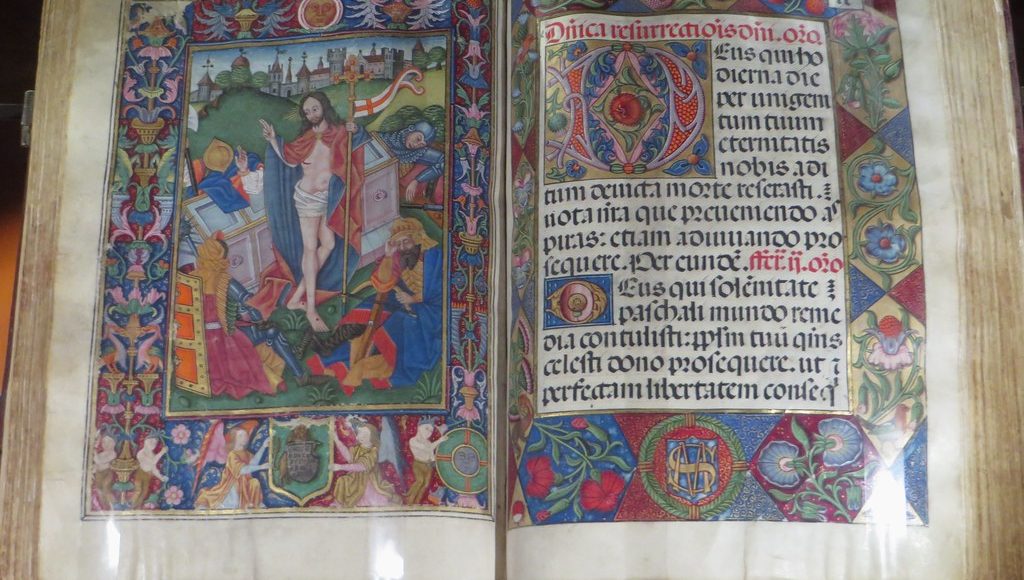 Dñica resurrectiõis dñi. orõ.
Deus qui ho
dierna die
per unigeni
tum tuum
eternitatis
nobis adi
tum deuicta morte reserasti.
uota nrã que preueniendo as
piras: etiam adiuuando pro
sequere. Per eundẽ. ffer. ij. orõ
Deus qui solẽnitate
paschali mundo reme
dia contulisti: ppl'm tuũ qs
celesti dono prosequere. ut
perfectam libertatem conseq